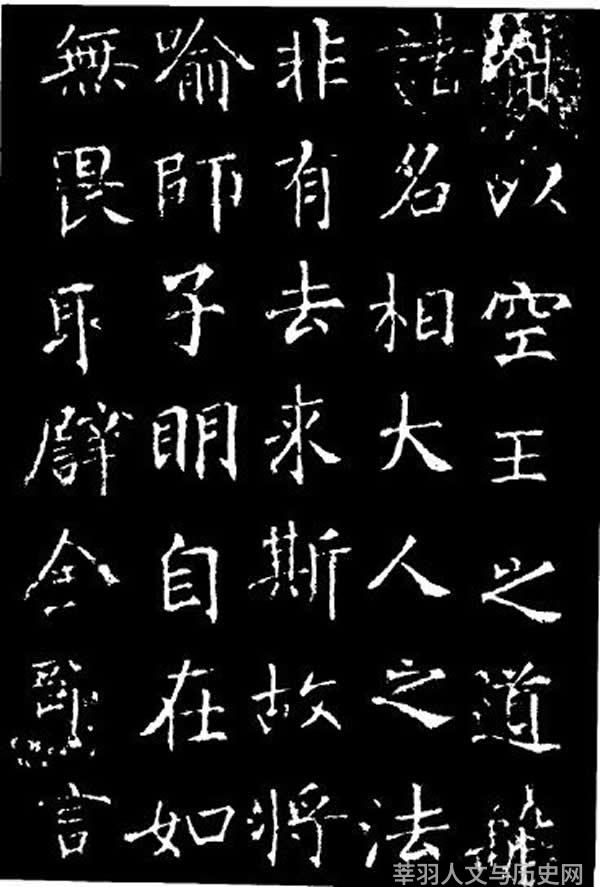 以空王之道離
諸名相大人之法
非有去来斯故將
喻師子明自在如
無畏取譬金剛言
莘羽人文与历史网